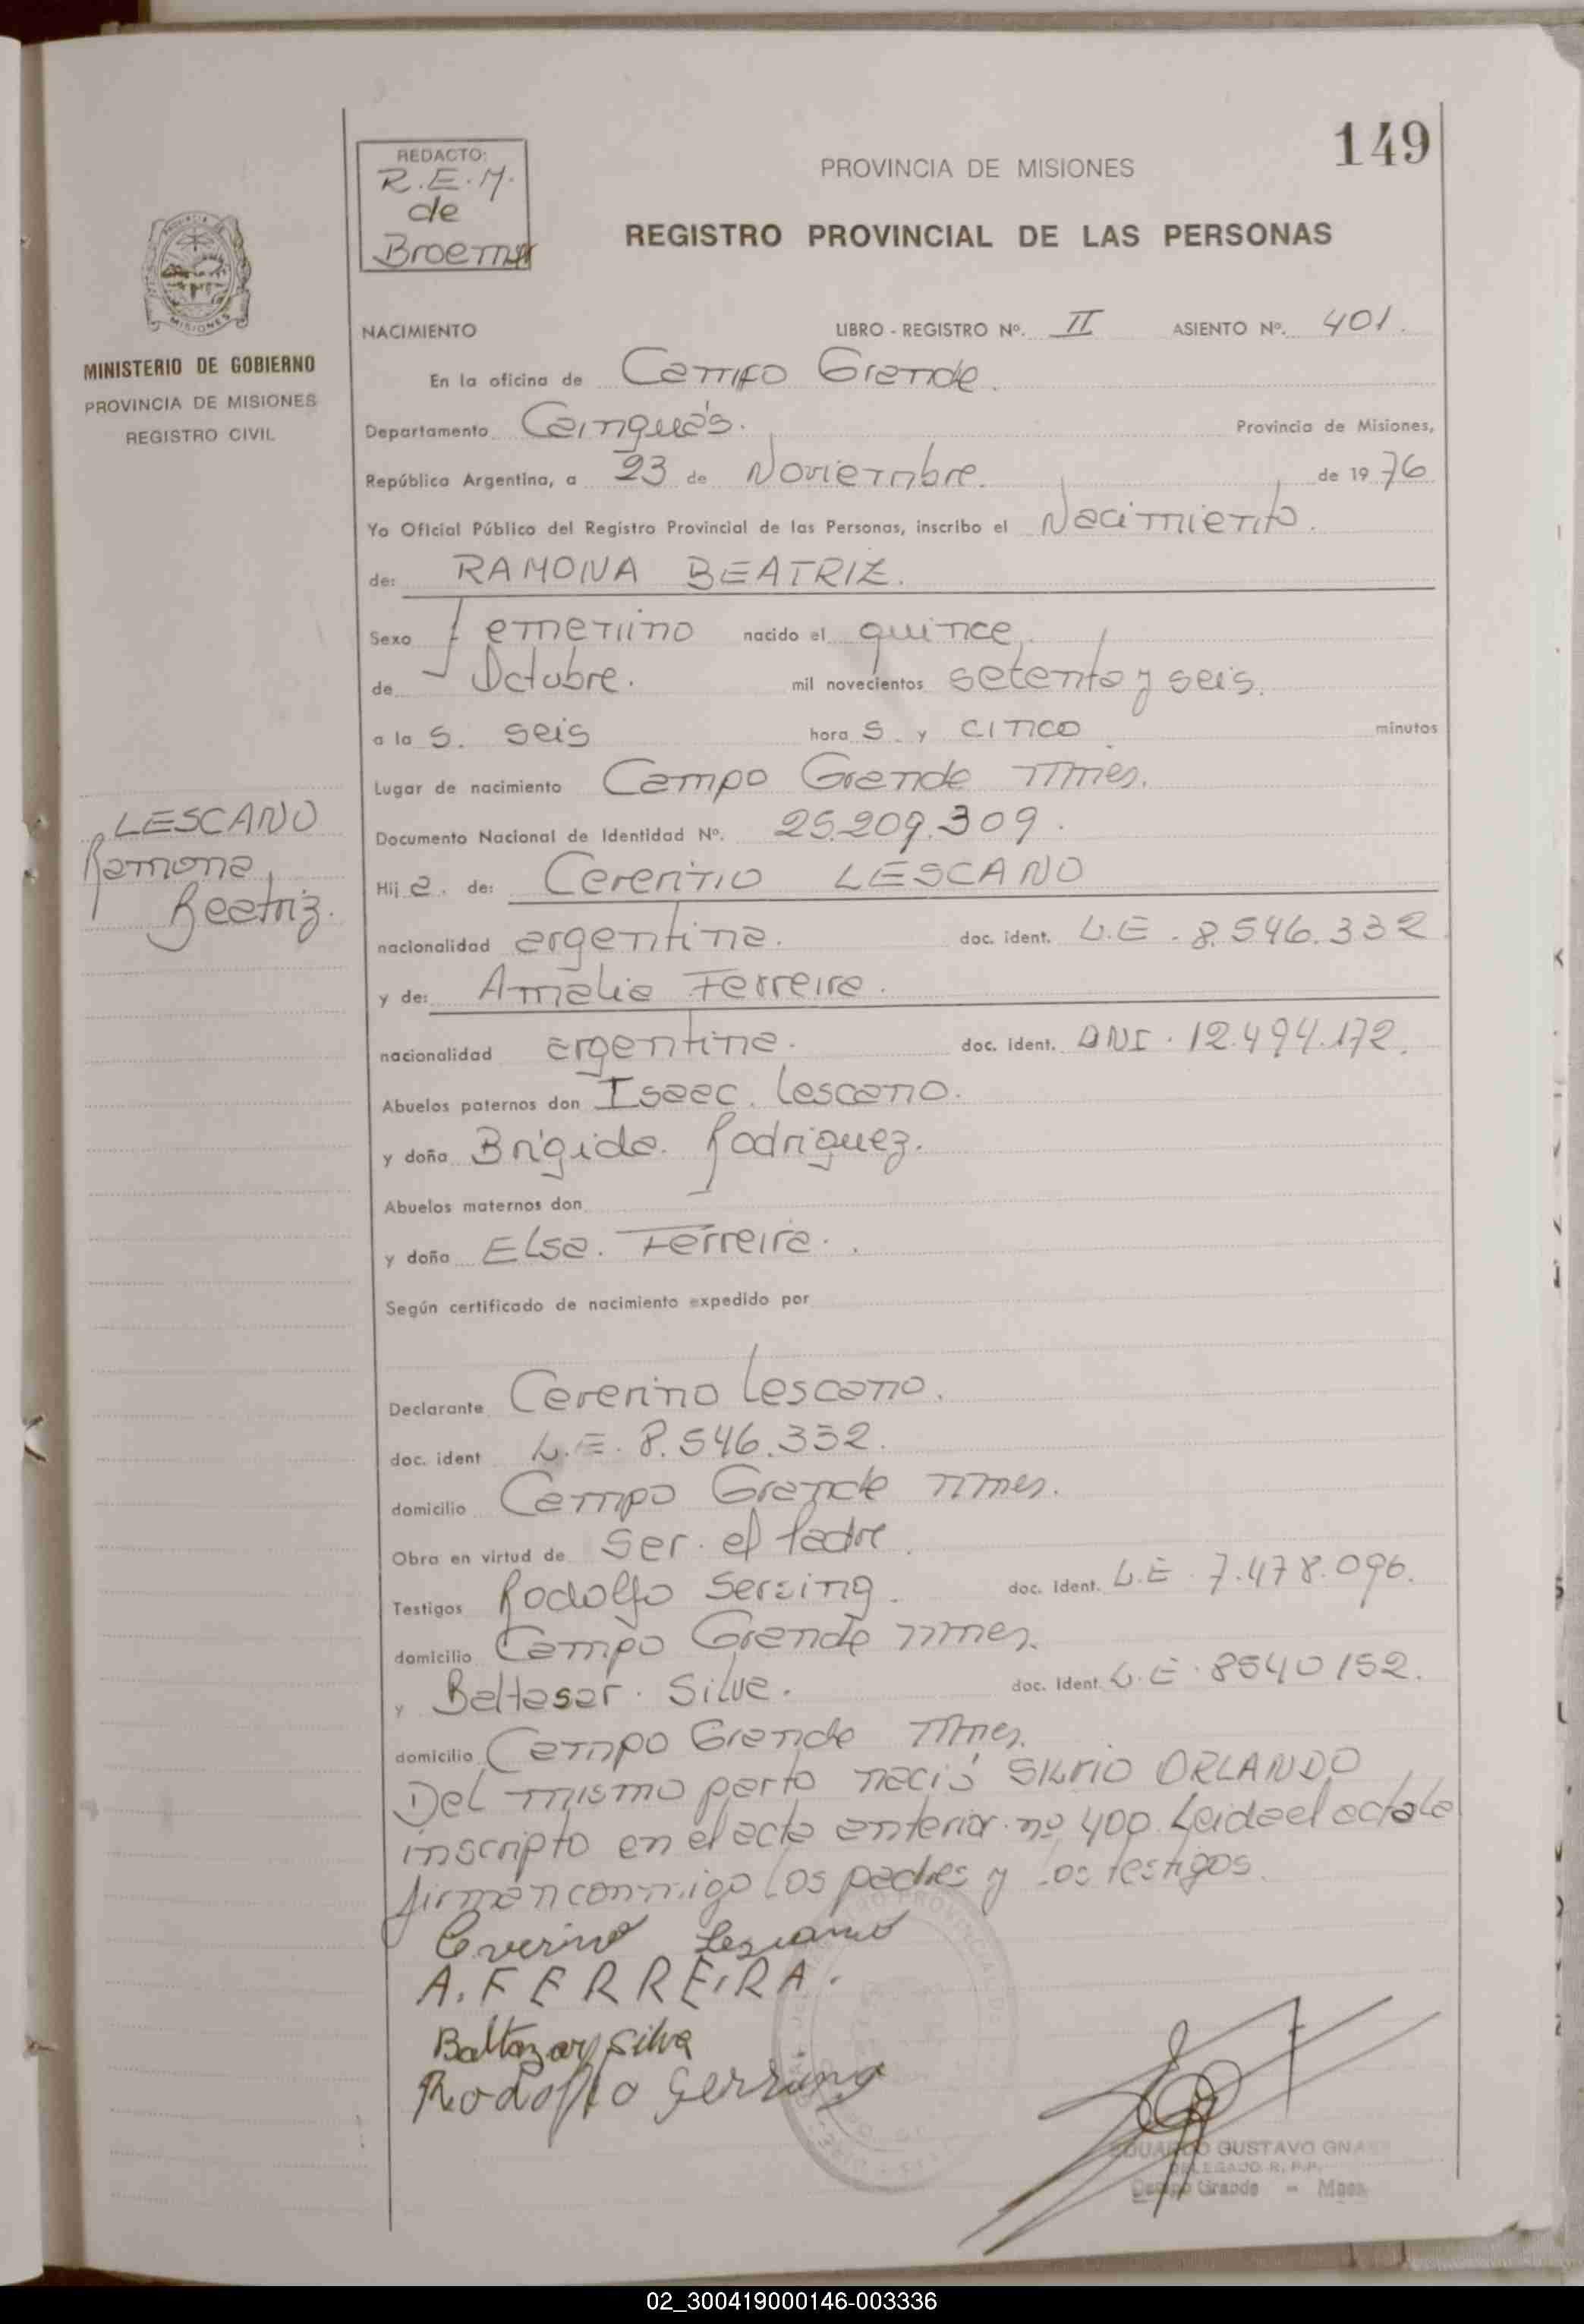 149
REDACTO:
R.E.M.
de
Broemser
PROVINCIA DE MISIONES
REGISTRO PROVINCIAL DE LAS PERSONAS
MISIONES
MINISTERIO DE GOBIERNO
PROVINCIA DE MISIONES
REGISTRO CIVIL
NACIMIENTO LIBRO - REGISTRO Nº. II ASIENTO Nº. 401.
En la oficina de Campo Grande.
Departamento Cainguás. Provincia de Misiones,
República Argentina, a 23 de Noviembre. de 19 76
Yo Oficial Público del Registro Provincial de las Personas, inscribo el Nacimiento.
de: RAMONA BEATRIZ.
Sexo femenino nacido el quince
de Octubre. mil novecientos setenta y seis.
a la s. seis hora s y cinco minutos
Lugar de nacimiento Campo Grande Mnes.
Documento Nacional de Identidad Nº. 25.209.309.
LESCANO
Ramona
Beatriz.
Hij a. de: Cerenino LESCANO
nacionalidad argentina. doc. ident. L.E. 8.546.332
y de: Amalia Ferreira.
nacionalidad argentina. doc. ident. DNI. 12.494.172.
Abuelos paternos don Isaac. Lescano.
y doña Brigida. Rodriguez.
Abuelos maternos don
y doña Elsa. Ferreira.
Según certificado de nacimiento expedido por
Declarante Ceverino Lescano.
doc. ident L.E. 8.546.332.
domicilio Campo Grande Mnes.
Obra en virtud de ser. el Padre.
Testigos Rodolfo Sersing. doc. ident. L.E. 7.478.096.
domicilio Campo Grande Mnes.
y Baltasar. Silva. doc. ident. L.E. 8540152.
domicilio Campo Grande Mnes.
Del mismo parto nació SILVIO ORLANDO
inscripto en el acta anterior. nº 400. Leida el acta la
firman conmigo los padres y los testigos.
Ceverino Lescano
A. FERREIRA.
Baltazar Silva
Rodolfo Gersung
EDUARDO GUSTAVO
DELEGADO R. P. P.
Campo Grande - Mnes
02_300419000146-003336